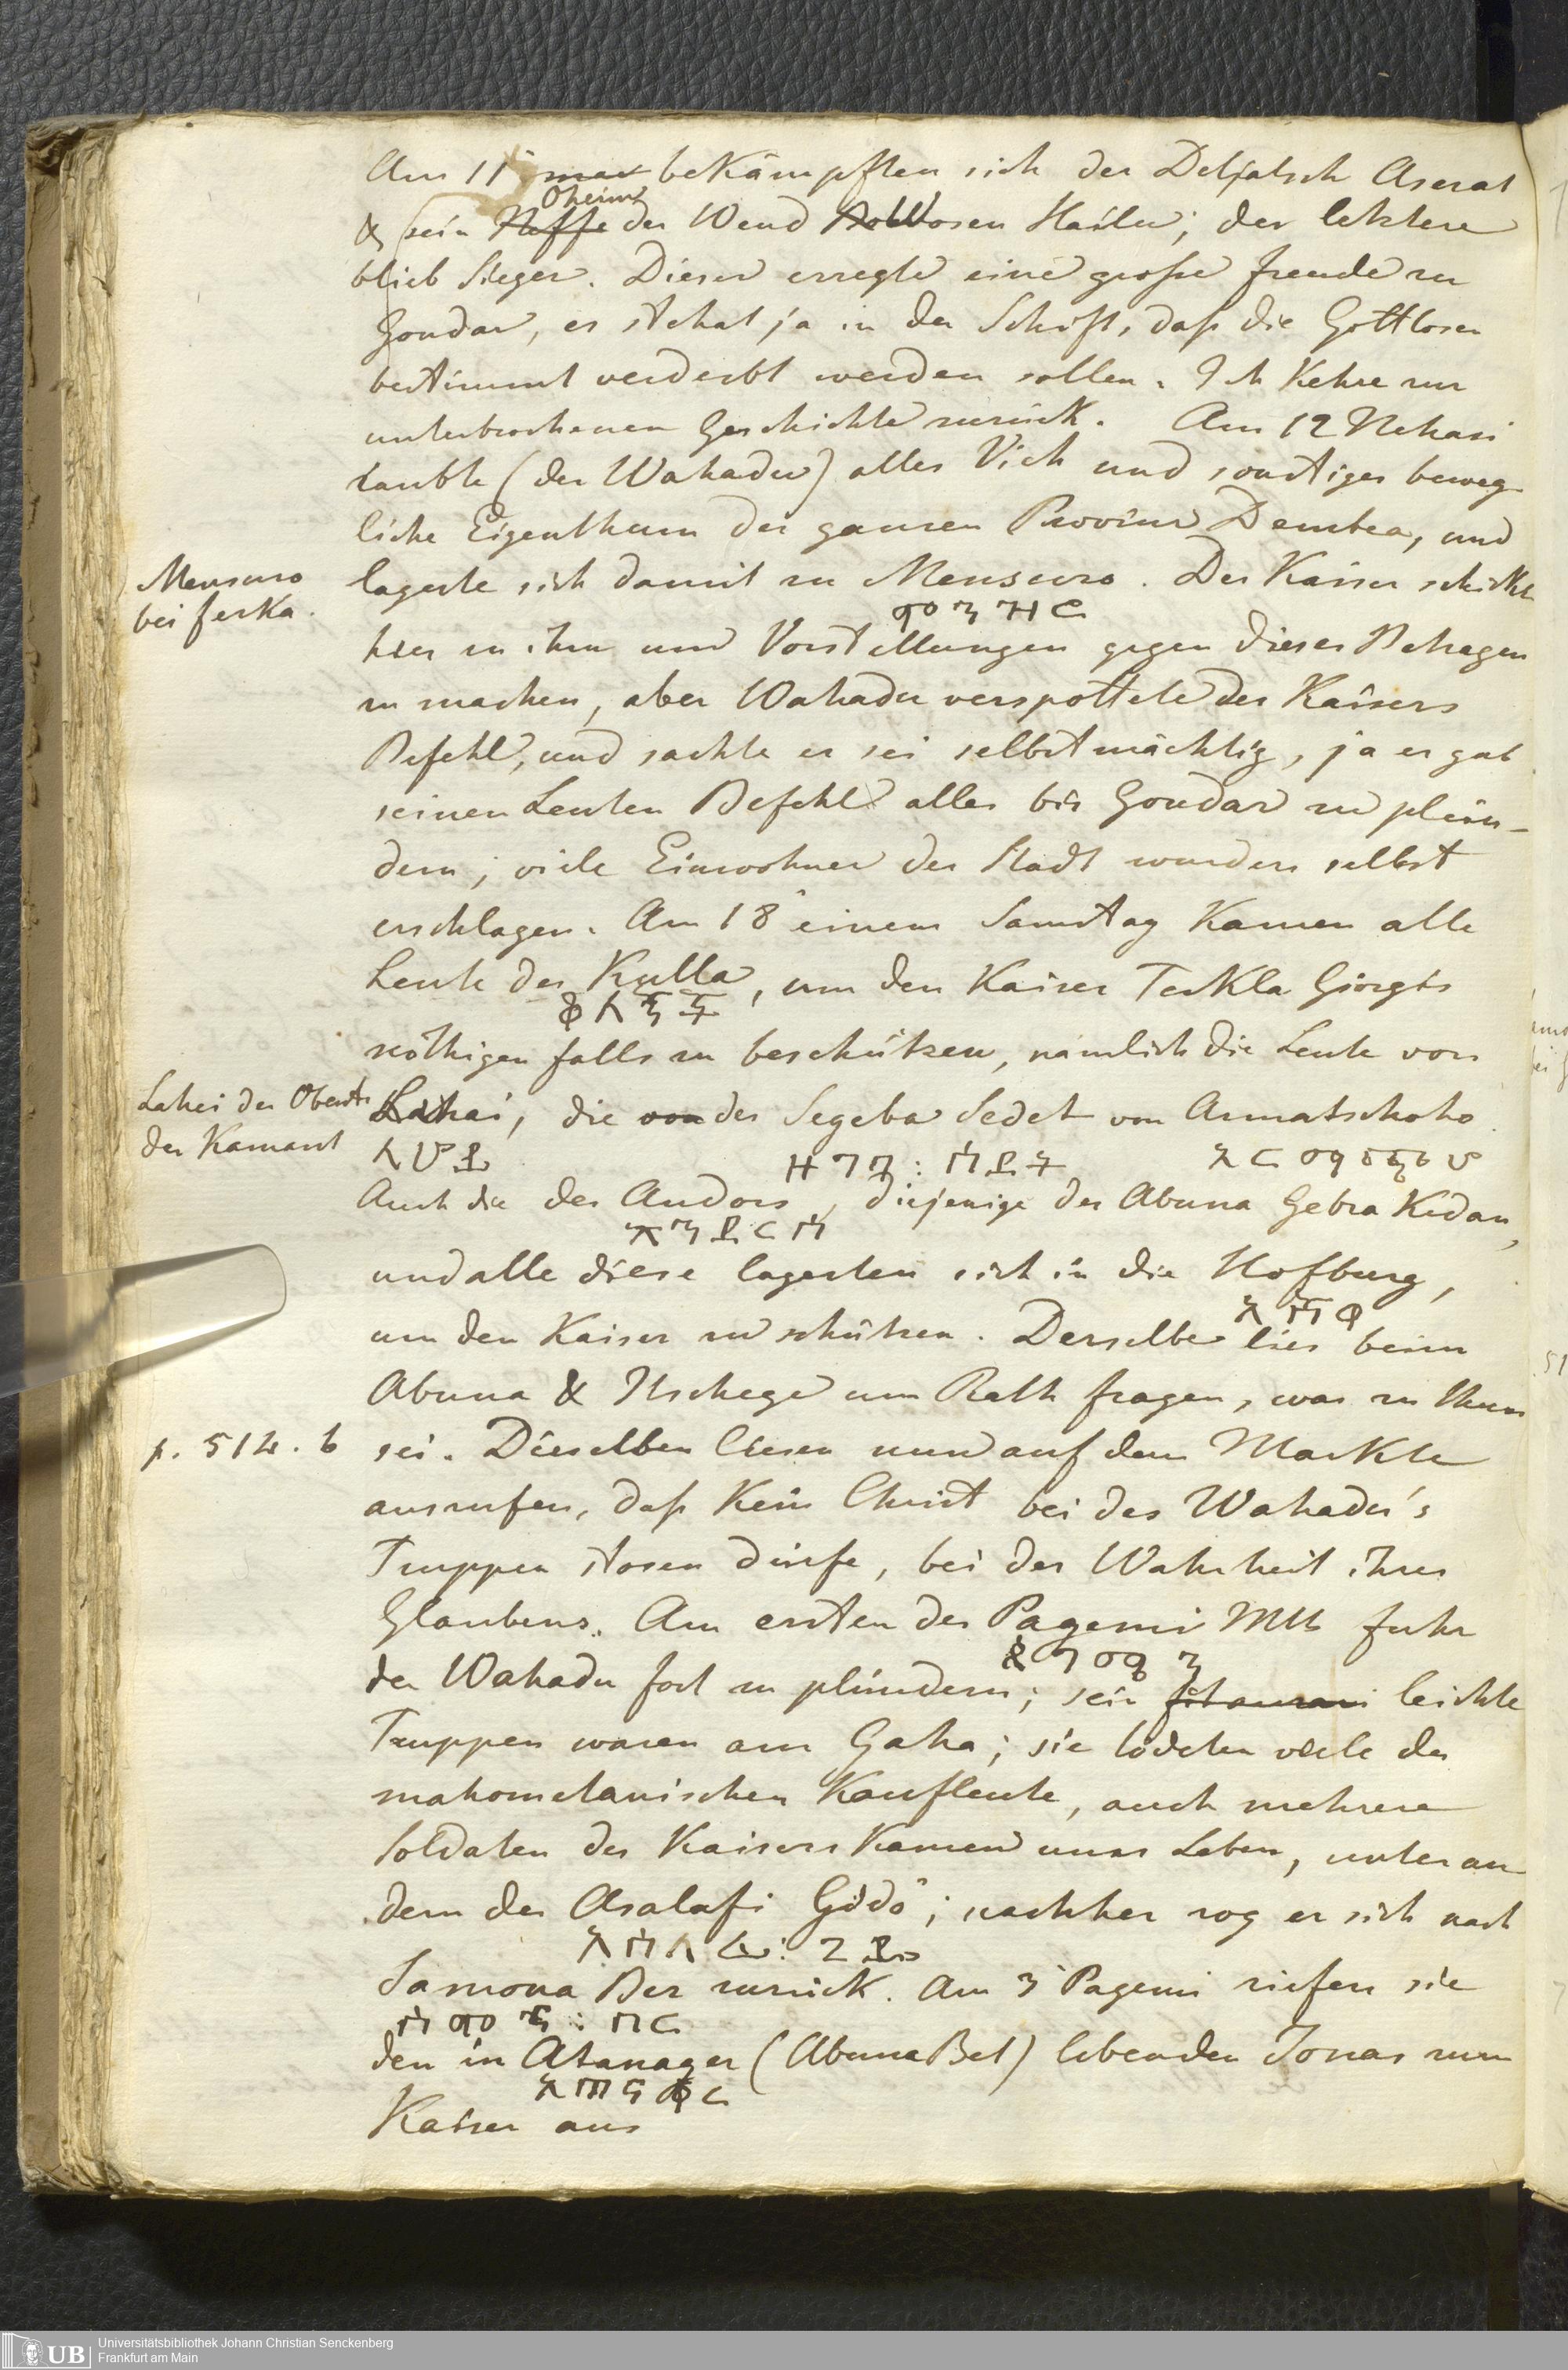 Am 11 ̃ mar bekämpften sich der Detjatsch Aserat
Oheim
& sein Neffe der Wend Wosen Hailu; der letztere
blieb Sieger. Dieses erregte eine große freude zu
Gondar, es stehet ja in der Schrift, daß die Gottlosen
bestimmt verderbt werden sollen. Ich Kehre zur
unterbrochenen Geschichte zurück. Am 12 Nehasi
raubte (der Wahadu) alles Vieh und sonstiges beweg
liche Eigenthum der ganzen Provinz Dembea, und
Mensuro
bei ferka.
lagerte sich damit zu Mensuro. Der Kaiser schickte
መንዝር
hier zu ihm und Vorstellungen gegen dieses Betragen
zu machen, aber Wahadu verspottete des Kaisers
Befehl, und sachte er sei selbst mächtig, ja er gab
seinen Leuten Befehl alles bis Gondar zu plün-
dern; viele Einwohner der Stadt wurden selbst
erschlagen. Am 18 ̃ einem Samstag Kamen alle
Leute der Kulla, um den Kaiser Tekla Giorgis
nöthigen falls zu beschützen, nämlich die Leute von
Lahei der Oberste
der Kamant
Lahai, die von der Segeba Sedet von Armatschoho
ላህይ
አርማጭሆ
Auch die des Andors, diejenige der Abuna Gebra Kidan,
አንድርስ
und alle diese lagerten sich in die Hofburg,
um den Kaiser zu schützen. Derselbe lies beim
Abuna & Itschege um Rath fragen, was zu thun
p. 514. b
sei. Dieselben liesen nun auf dem Markte
ausrufen, daß Kein Christ bei des Wahadu's
Truppen stosen dürfe, bei der Wahrheit ihres
Glaubens. Am ersten des Pagemi Mts fuhr
ጳጉሜን
der Wahadu fort zu plündern; sein fitaurari leichte
Truppen waren am Gaha; sie tödeten viele der
mahometanischen Kaufleute, auch mehrere
Soldaten des Kaisers Kamen ums Leben, unter an
dern der Asalafi Gidö; nachher zog er sich nach
አሳላፊ: ጊዶ
Samona Ber zurück. Am 3 ̃ Pagemi riefen sie
ሳሞና: በር
den in Atanager (Abuna Bet) lebenden Jonas zum
Kaiser aus
UB Universitätsbibliothek Johann Christian Senckenberg
Frankfurt am Main